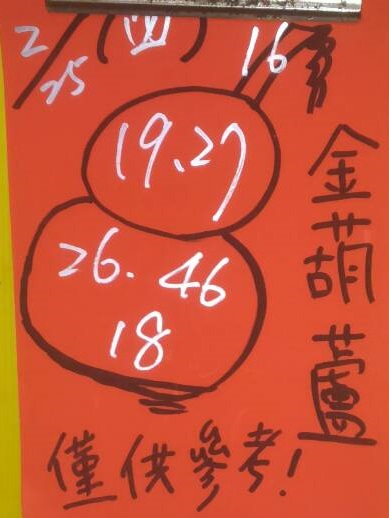 2/25 (四) 16
19、27
26. 46
18
金葫蘆
僅供參考!